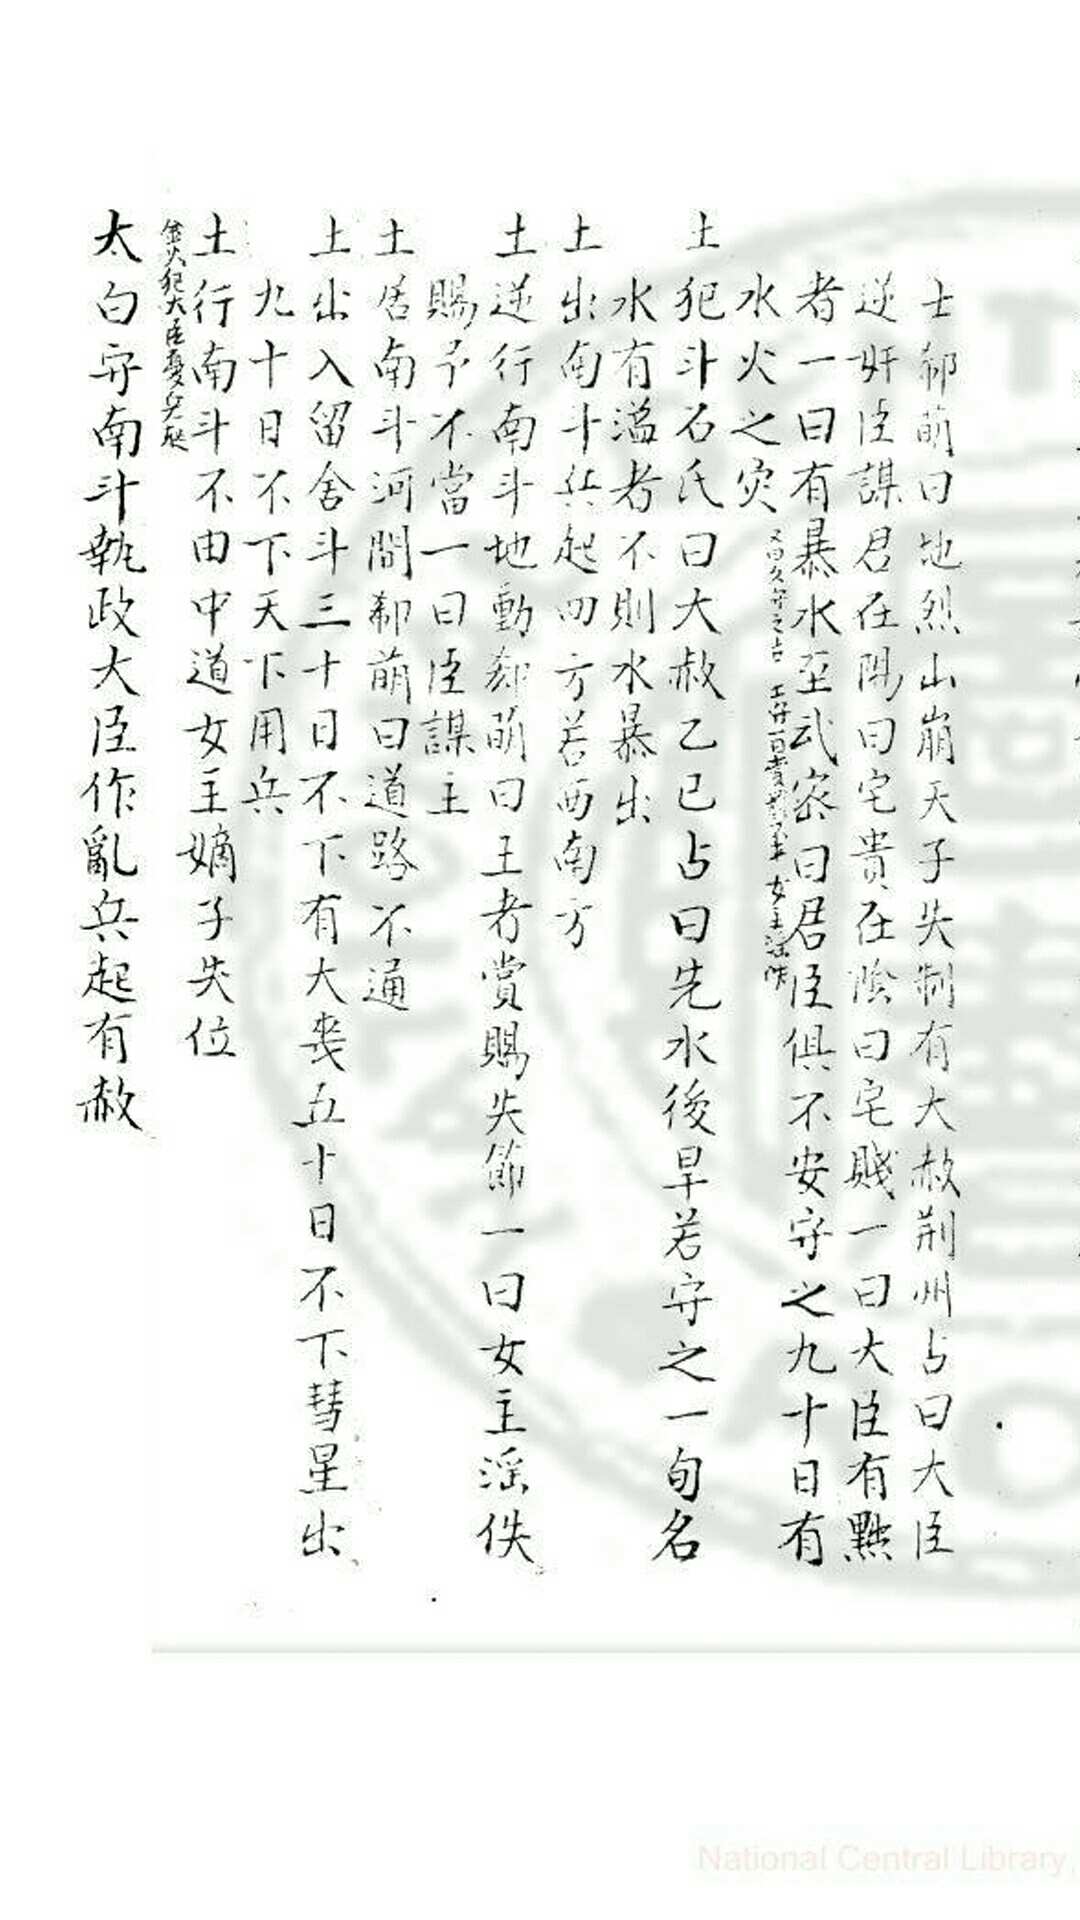 士郗萌曰地烈山崩天子失制有大赦荊州占曰大臣
逆奸臣謀君在陽曰宅貴在陰曰宅賤一曰大臣有黜
者一曰有暴水至武密曰君臣俱不安守之九十日有
水火之灾 又曰久守之占 女主淫泆
土犯斗石氏曰大赦乙巳占曰先水後旱若守之一旬名
水有溢者不則水暴出
土出南斗兵起四方若西南方
土逆行南斗地動郗萌曰王者賞賜失節一曰女主淫佚
賜予不當一曰臣謀主
土居南斗河間郗萌曰道路不通
土出入留舍斗三十日不下有大喪五十日不下彗星出
九十日不下天下用兵
土行南斗不由中道女主嫡子失位
金火犯大臣憂兵起
太白守南斗執政大臣作亂兵起有赦
National Central Library,